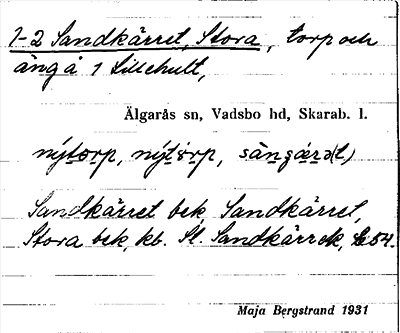 1-2 Sandkärret, Stora, torp och
äng å 1 Lillehult,
Älgarås sn, Vadsbo hd, Skarab. l.
nýtorp, nýtorp,
Sandkärret bek, Sandkärret,
Stora bek, kb. St. Sandkärret, 54.
Maja Bergstrand 1931